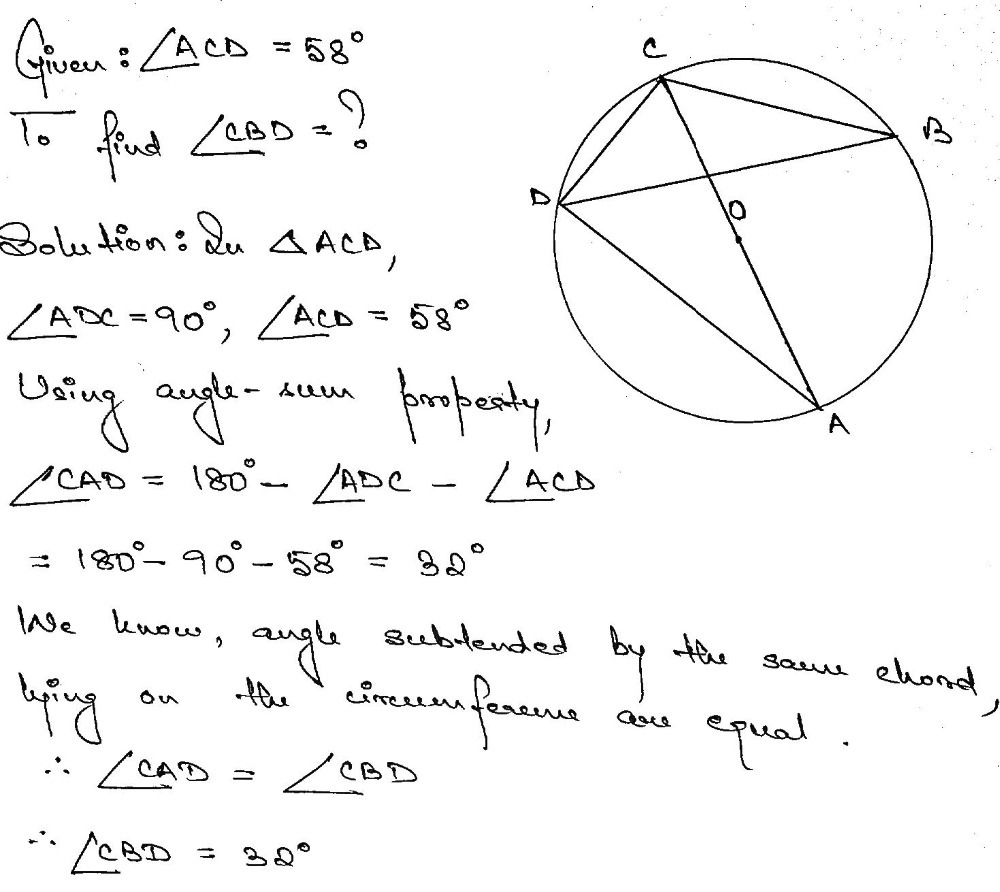 Given: ∠ACD = 58°
To find ∠CBD = ?
Solution: In △ACD,
∠ADC = 90°, ∠ACD = 58°
Using angle-sum property,
∠CAD = 180° - ∠ADC - ∠ACD
= 180° - 90° - 58° = 32°
We know, angle subtended by the same chord,
lying on the circumference are equal.
∴ ∠CAD = ∠CBD
∴ ∠CBD = 32°
C
B
D
O
A